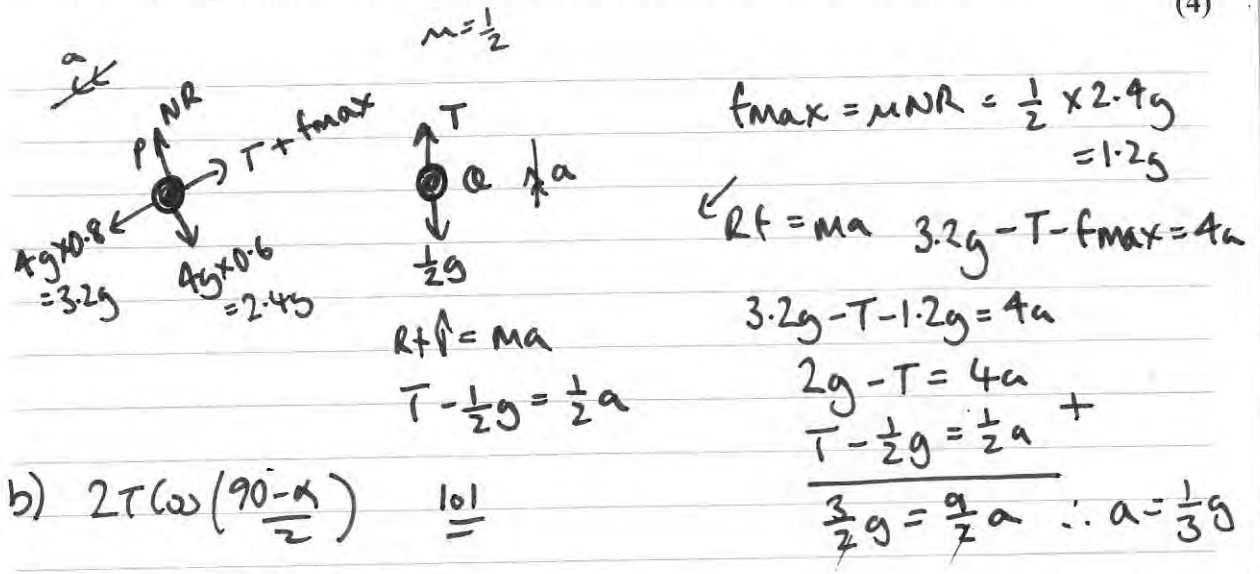 (4)
μ=½
a
P NR T + fmax
4g×0.8 =3.2g
4g×0.6 =2.4g
T
Q a
½g
R↑ = ma
T - ½g = ½a
fmax = μNR = ½ × 2.4g
=1.2g
↙Rf = ma 3.2g - T - fmax = 4a
3.2g - T - 1.2g = 4a
2g - T = 4a
T - ½g = ½a +
3/2 g = 9/2 a ∴ a = ⅓g
b) 2T Cos (90-α / 2)